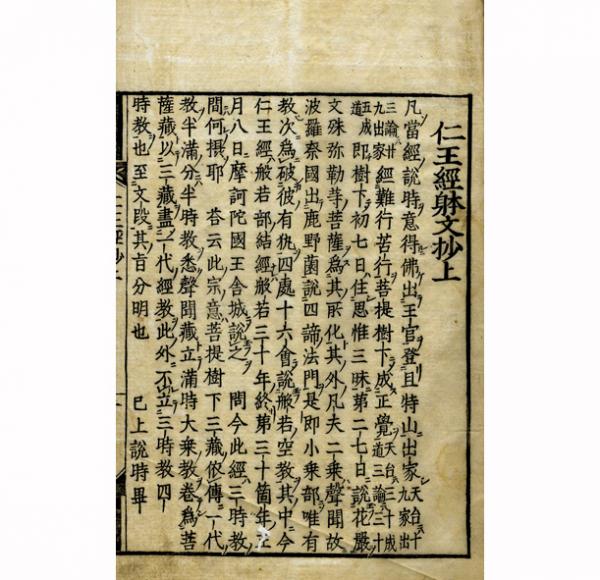 仁王經躰文抄上
凡當經說時意得佛出王宮登且特山出家 天台三十九家出
三論廿九出家 經難行苦行菩提樹下成正覺 天台三十成道三論三十
五成道 即樹下初七日住思惟三昧第二七日說花嚴
文殊弥勒等菩薩為其所化其外凡夫二乘聲聞故
波羅奈國出鹿野薗說四諦法門是即小乘部唯有
教次為破彼有執四處十六會說般若空教其中今
仁王經般若部結經般若三十年終第三十箇年正
月八日摩訶陀國王舍城說之 問今此經三時教
間何攝耶 答云此宗意菩提樹下三藏依傳一代
教半滿分半時教悉聲聞藏立滿時大乘教卷為菩
薩藏以二藏盡一代經教此外不立三時教四
時教也至文段其旨分明也 已上說時畢